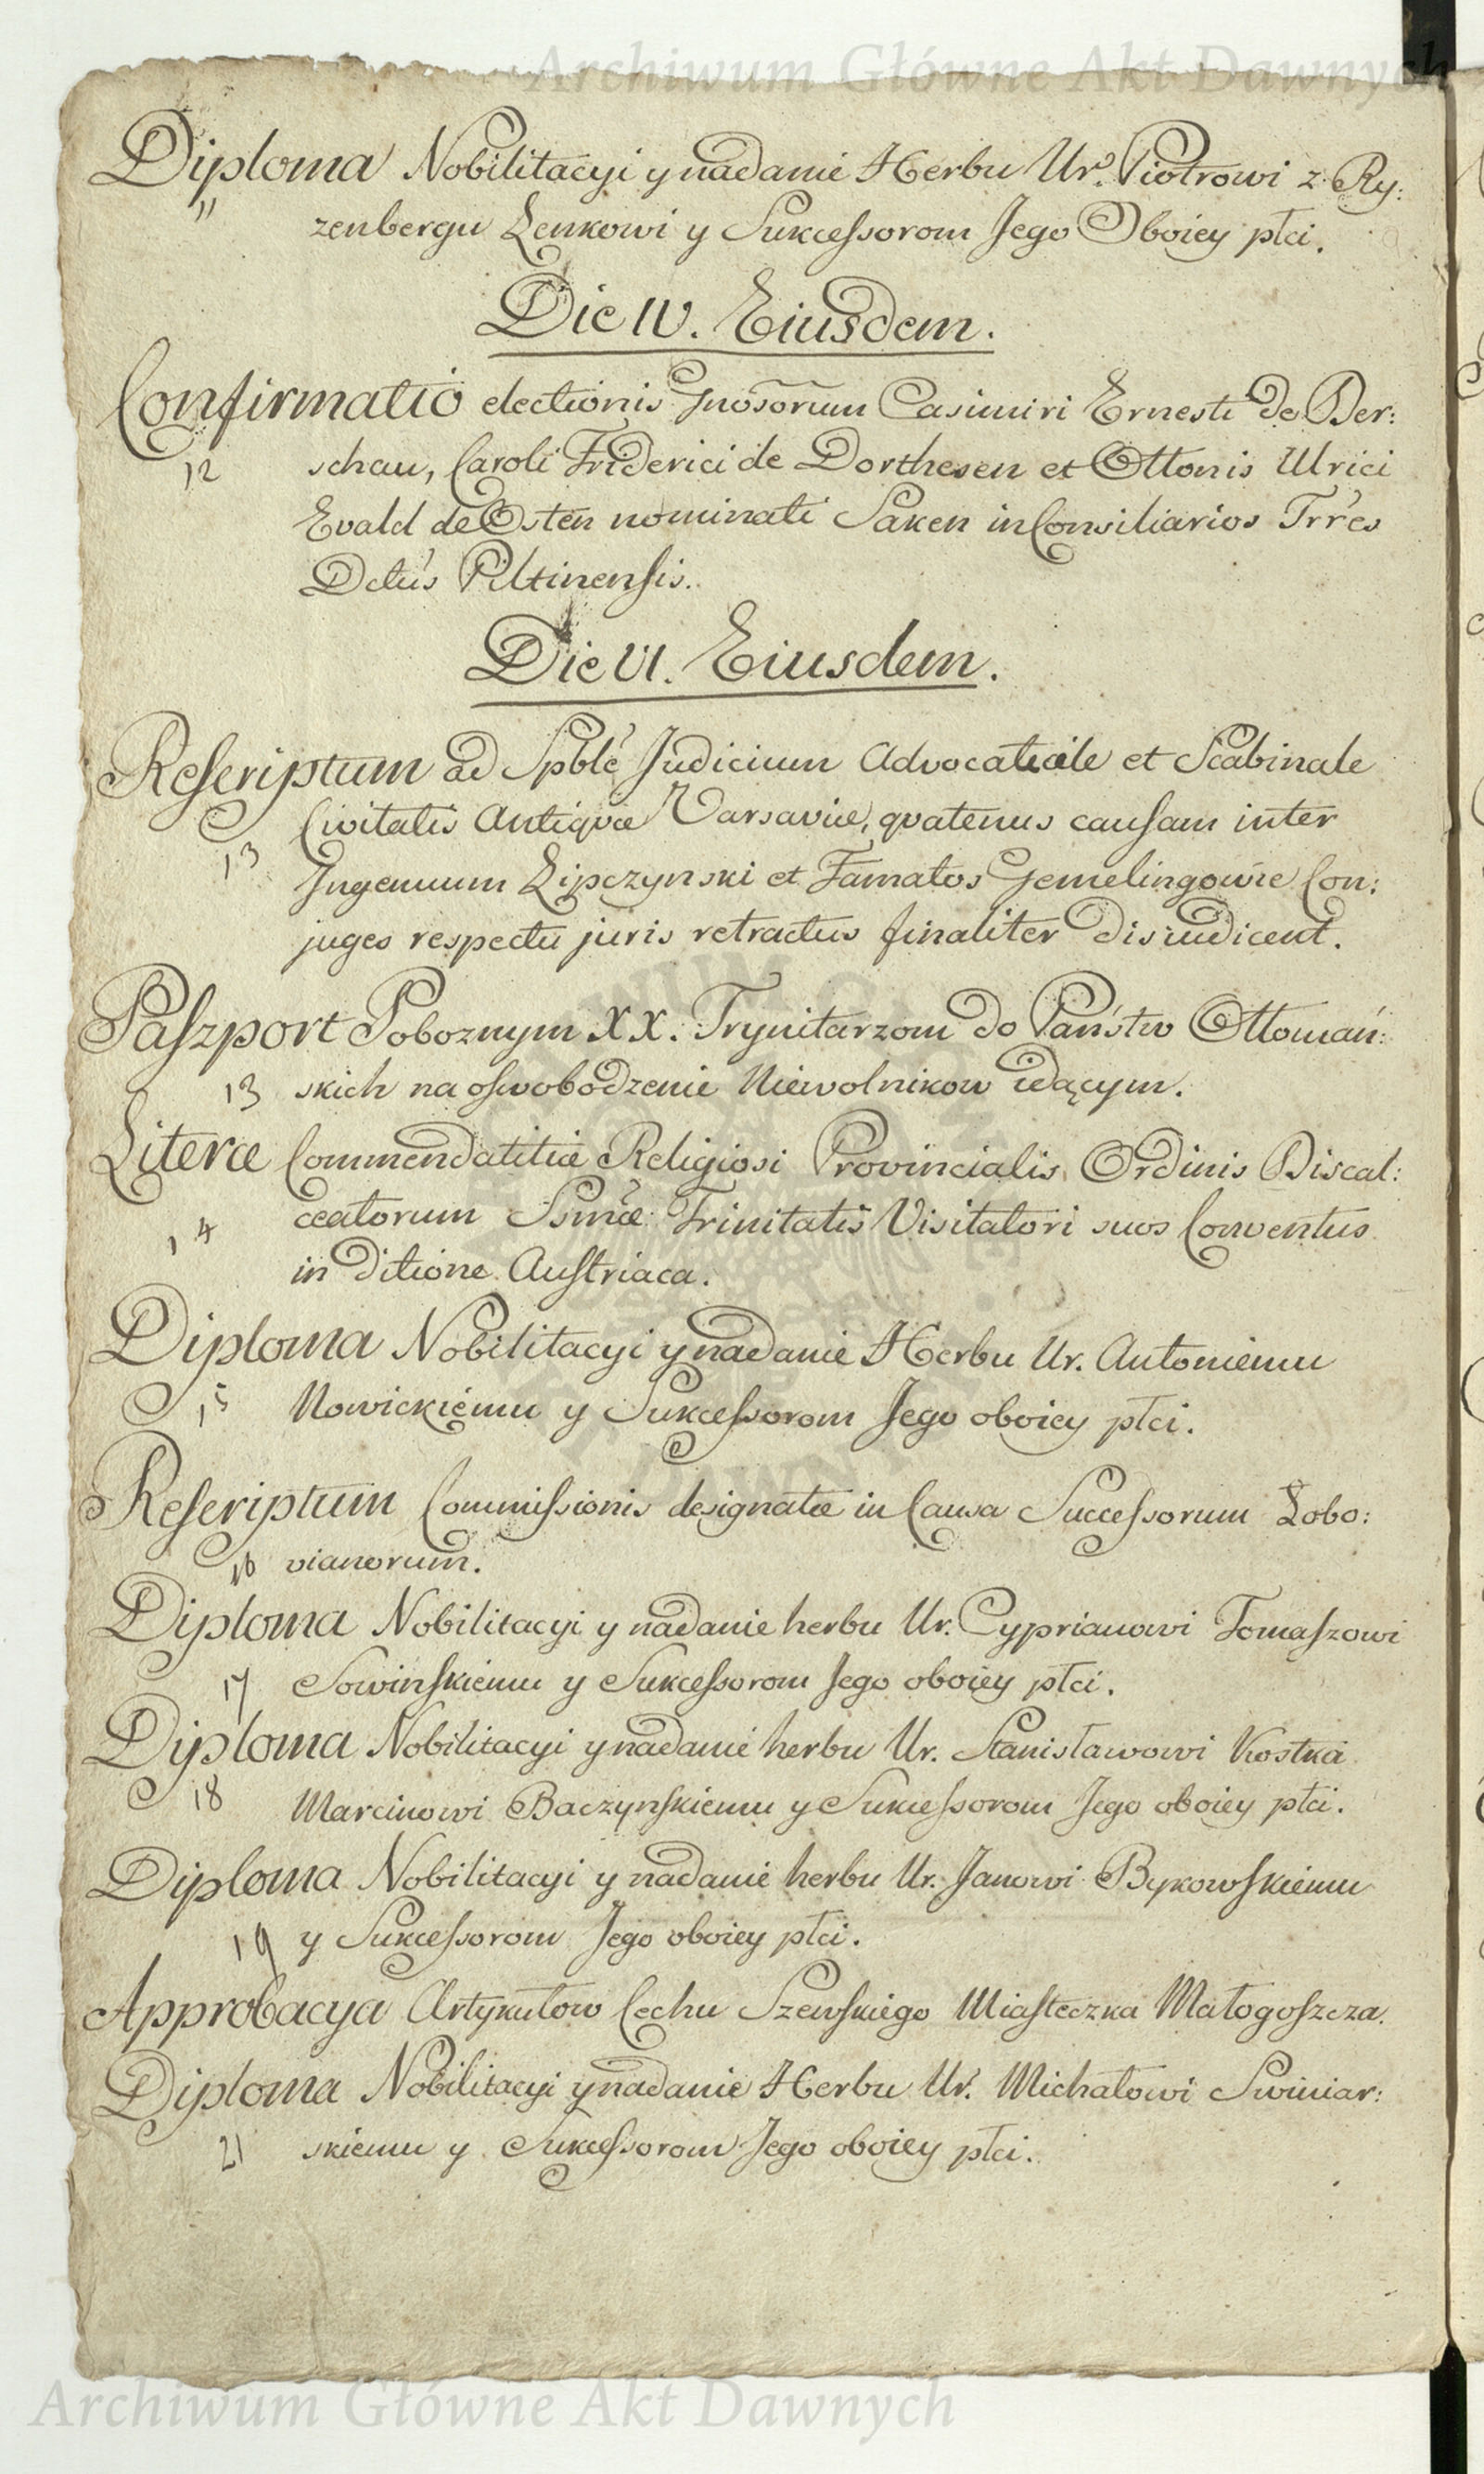 Archiwum Główne Akt Dawnych
Diploma Nobilitacyi y nadanie Herbu Ur. Piotrowi z Ry:
11 zenbergu Lenkowi y Sukcessorom Jego Oboiey płci.
Die IV. Eiusdem.
Confirmatio electionis Gnosorum Casimiri Ernesti de Der:
12 schau, Caroli Friderici de Dorthesen et Ottonis Ulrici
Evald de Osten nominati Saken in Consiliarios Trr̃es
Dctũs Piltinensis.
Die VI. Eiusdem.
Rescriptum ad Spblẽ Judicium Advocatiale et Scabinale
Civitatis Antiquæ Varsaviæ, quatenus causam inter
13 Ingenuum Lipczynski et Famatos Gemelingowie Con:
juges respectu juris retractus finaliter disiudicent.
Paszport Poboznym XX. Trynitarzom do Państw Ottomań:
13 skich na oswobodzenie Niewolnikow idącym.
Literæ Commendatitiæ Religiosi Provincialis Ordinis Discal:
14 ceatorum Ssmæ Trinitatis Visitatori suos Conventus
in ditione Austriaca.
Diploma Nobilitacyi y nadanie Herbu Ur. Antoniemu
15 Nowickiemu y Sukcessorom Jego oboiey płci.
Rescriptum Commissionis designatæ in Causa Successorum Lobo:
16 vianorum.
Diploma Nobilitacyi y nadanie herbu Ur. Cyprianowi Tomaszowi
17 Sowinskiemu y Sukcessorom Jego oboiey płci.
Diploma Nobilitacyi y nadanie herbu Ur. Stanisławowi Kostka
18 Marcinowi Baczynskiemu y Sukcessorom Jego oboiey płci.
Diploma Nobilitacyi y nadanie herbu Ur. Janowi Bykowskiemu
19 y Sukcessorom Jego oboiey płci.
Approbacya Artykułow Cechu Szewskiego Miasteczka Małogoszcza.
Diploma Nobilitacyi y nadanie Herbu Ur. Michałowi Swiniar:
21 skiemu y Sukcessorom Jego oboiey płci.
Archiwum Główne Akt Dawnych